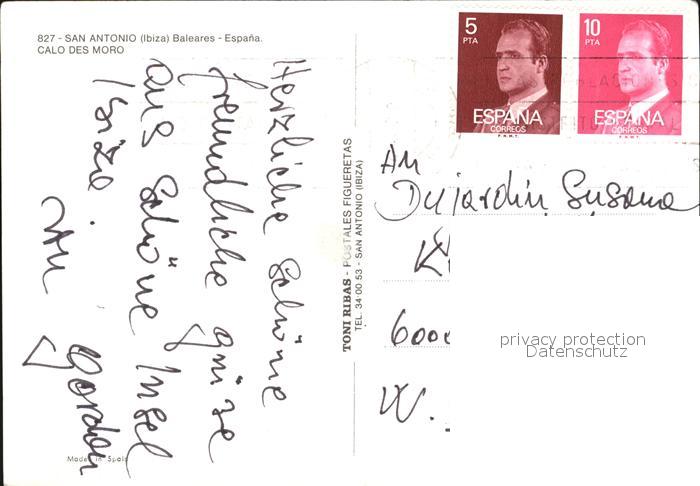 827 - SAN ANTONIO (Ibiza) Baleares - España.
CALO DES MORO
5 PTA
ESPAÑA
CORREOS
F.N.M.T.
10 PTA
ESPAÑA
CORREOS
F.N.M.T.
Herzliche schöne
freundliche grüze
aus schöne Insel
Ibiza.
TONI RIBAS - POSTALES FIGUERETAS
TEL. 34 00 53 - SAN ANTONIO (IBIZA)
An
Dujardin Susana
K
6000
W.
privacy protection
Datenschutz
Made in Spain